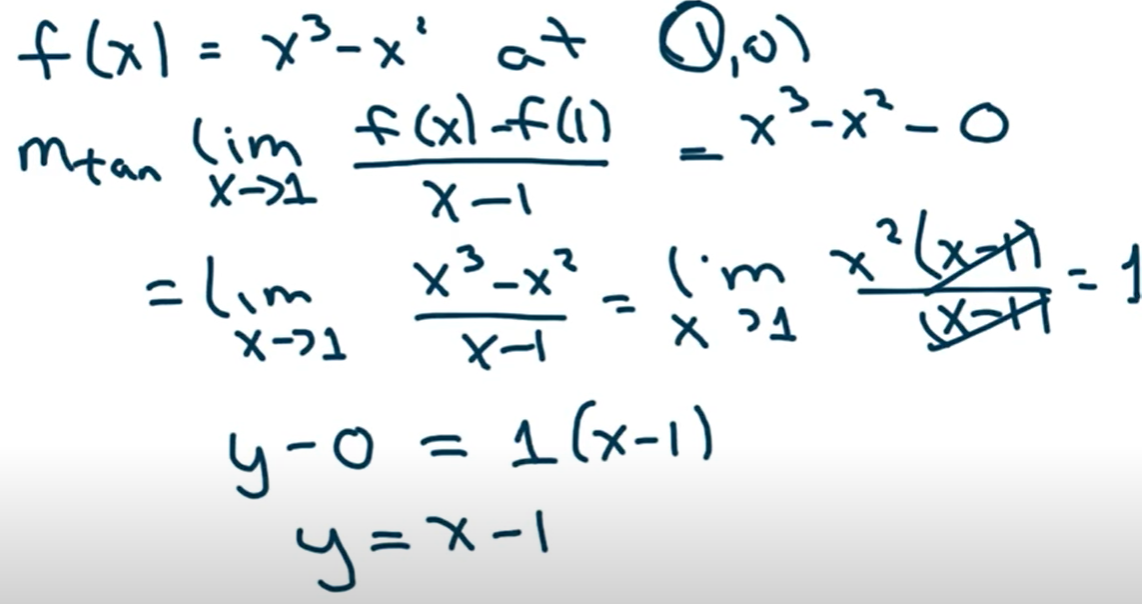 f(x) = x³-x² at (1,0)
mtan lim x→1 f(x)-f(1) / x-1 = x³-x²-0
= lim x→1 x³-x² / x-1 = lim x→1 x²(x-1) / (x-1) = 1
y-0 = 1(x-1)
y = x-1